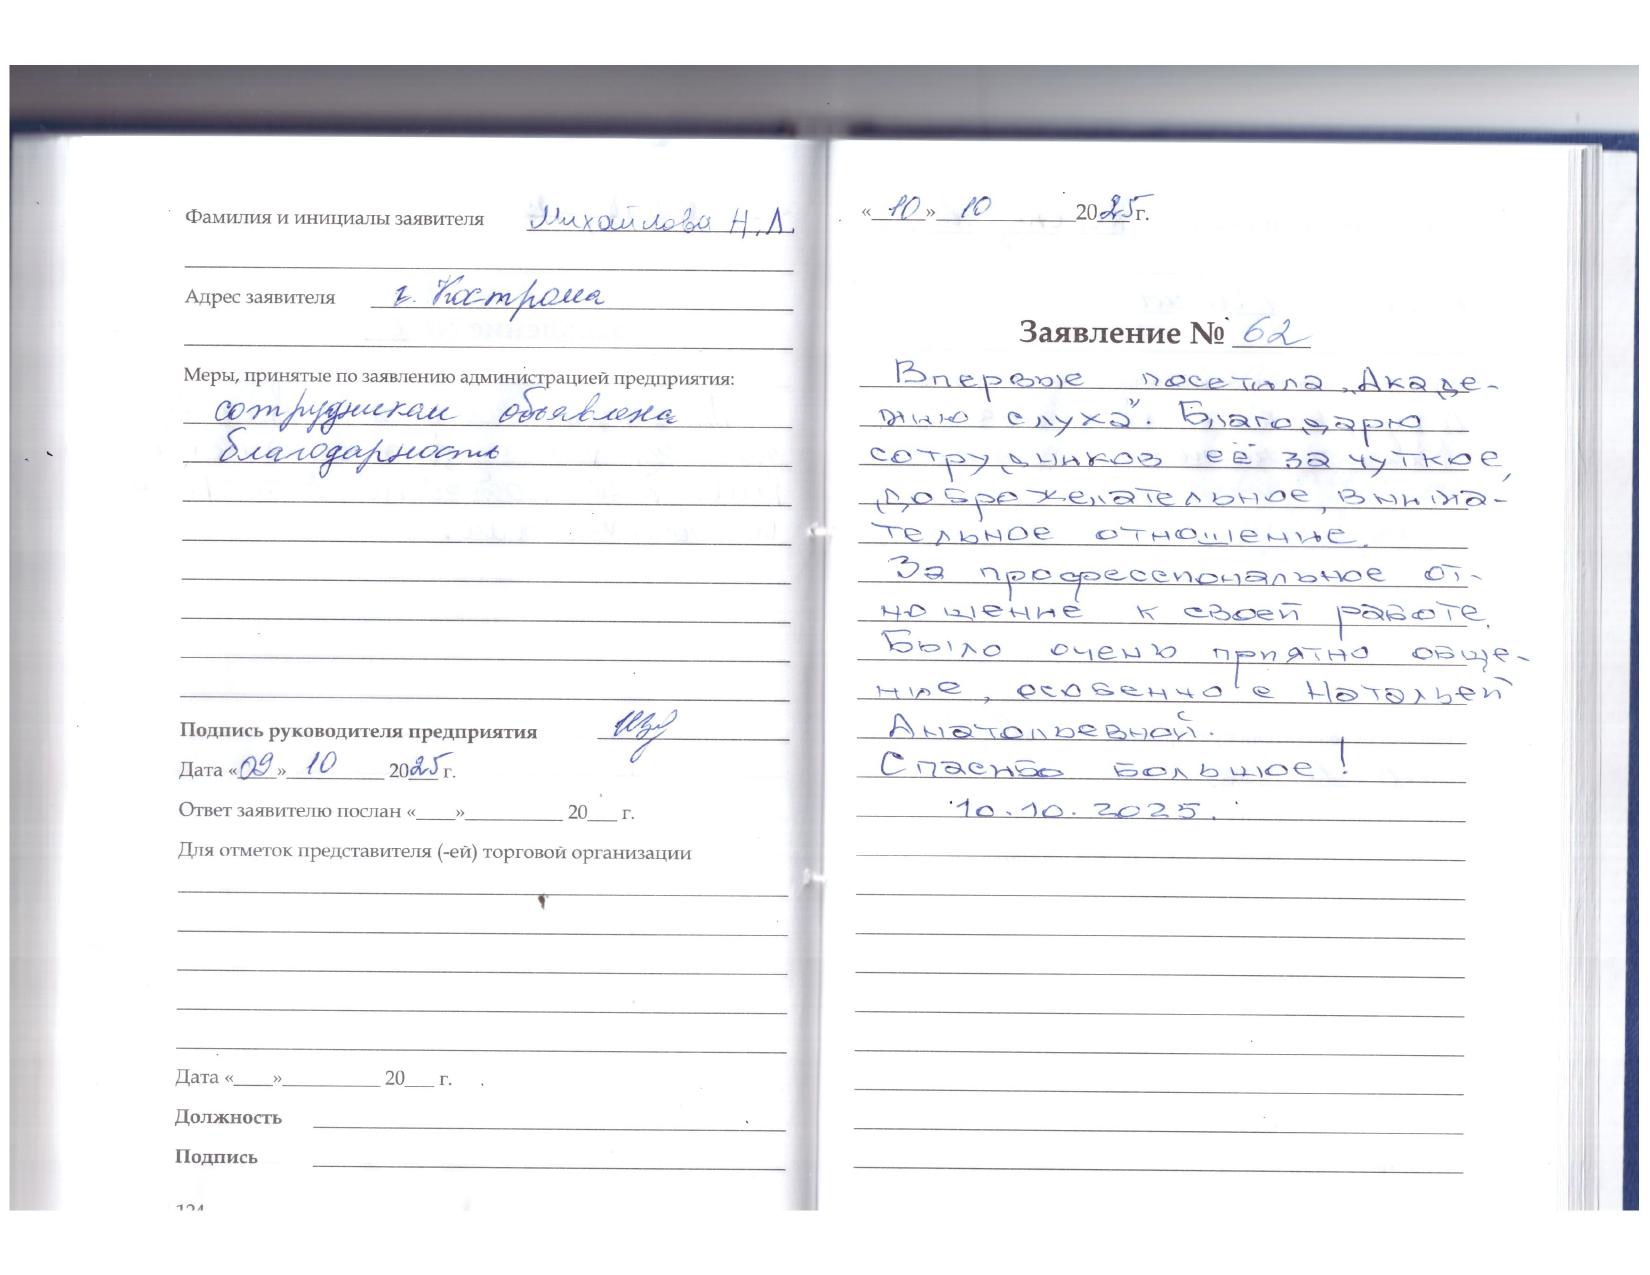 Фамилия и инициалы заявителя Михайлова Н.Л.
Адрес заявителя г. Кострома
Меры, принятые по заявлению администрацией предприятия:
сотрудникам объявлена
благодарность
Подпись руководителя предприятия
Дата «09» 10 2025 г.
Ответ заявителю послан «____»__________ 20___ г.
Для отметок представителя (-ей) торговой организации
Дата «____»__________ 20___ г.
Должность
Подпись
«10» 10 2025г.
Заявление № 62
Впервые посетила „Акаде-
мию слуха". Благодарю
сотрудников её за чуткое,
доброжелательное, внима-
тельное отношение.
За профессиональное от-
ношение к своей работе.
Было очень приятно обще-
ние, особенно с Натальей
Анатольевной.
Спасибо большое!
10.10.2025.